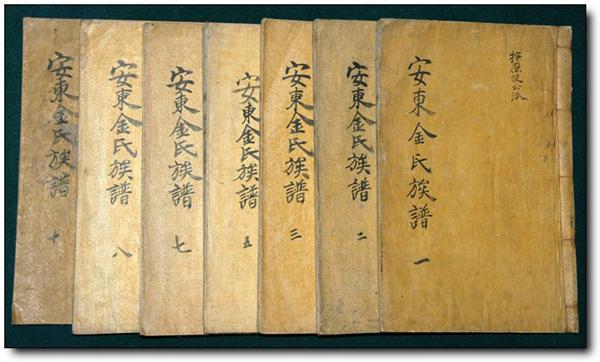 按廉使公派
安東金氏族譜 一
安東金氏族譜 二
安東金氏族譜 三
安東金氏族譜 五
安東金氏族譜 七
安東金氏族譜 八
安東金氏族譜 十